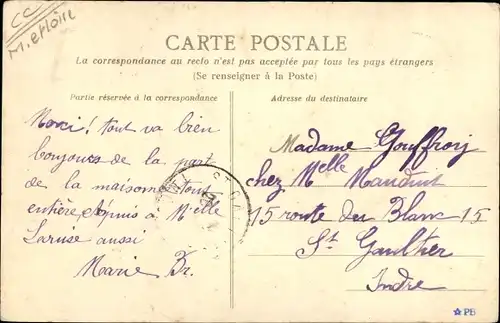 CC
M. et Loire
CARTE POSTALE
La correspondance au recto n'est pas acceptée par tous les pays étrangers
(Se renseigner à la Poste)
Partie réservée à la correspondance
Adresse du destinataire
Merci! tout va bien
toujours de la part
de la maison tout
entière et à Mlle
aussi
Marie Br.
Madame Gouffroy
chez Melle Mauduit
15 route du Blanc 15
St Gaultier
Indre
PB